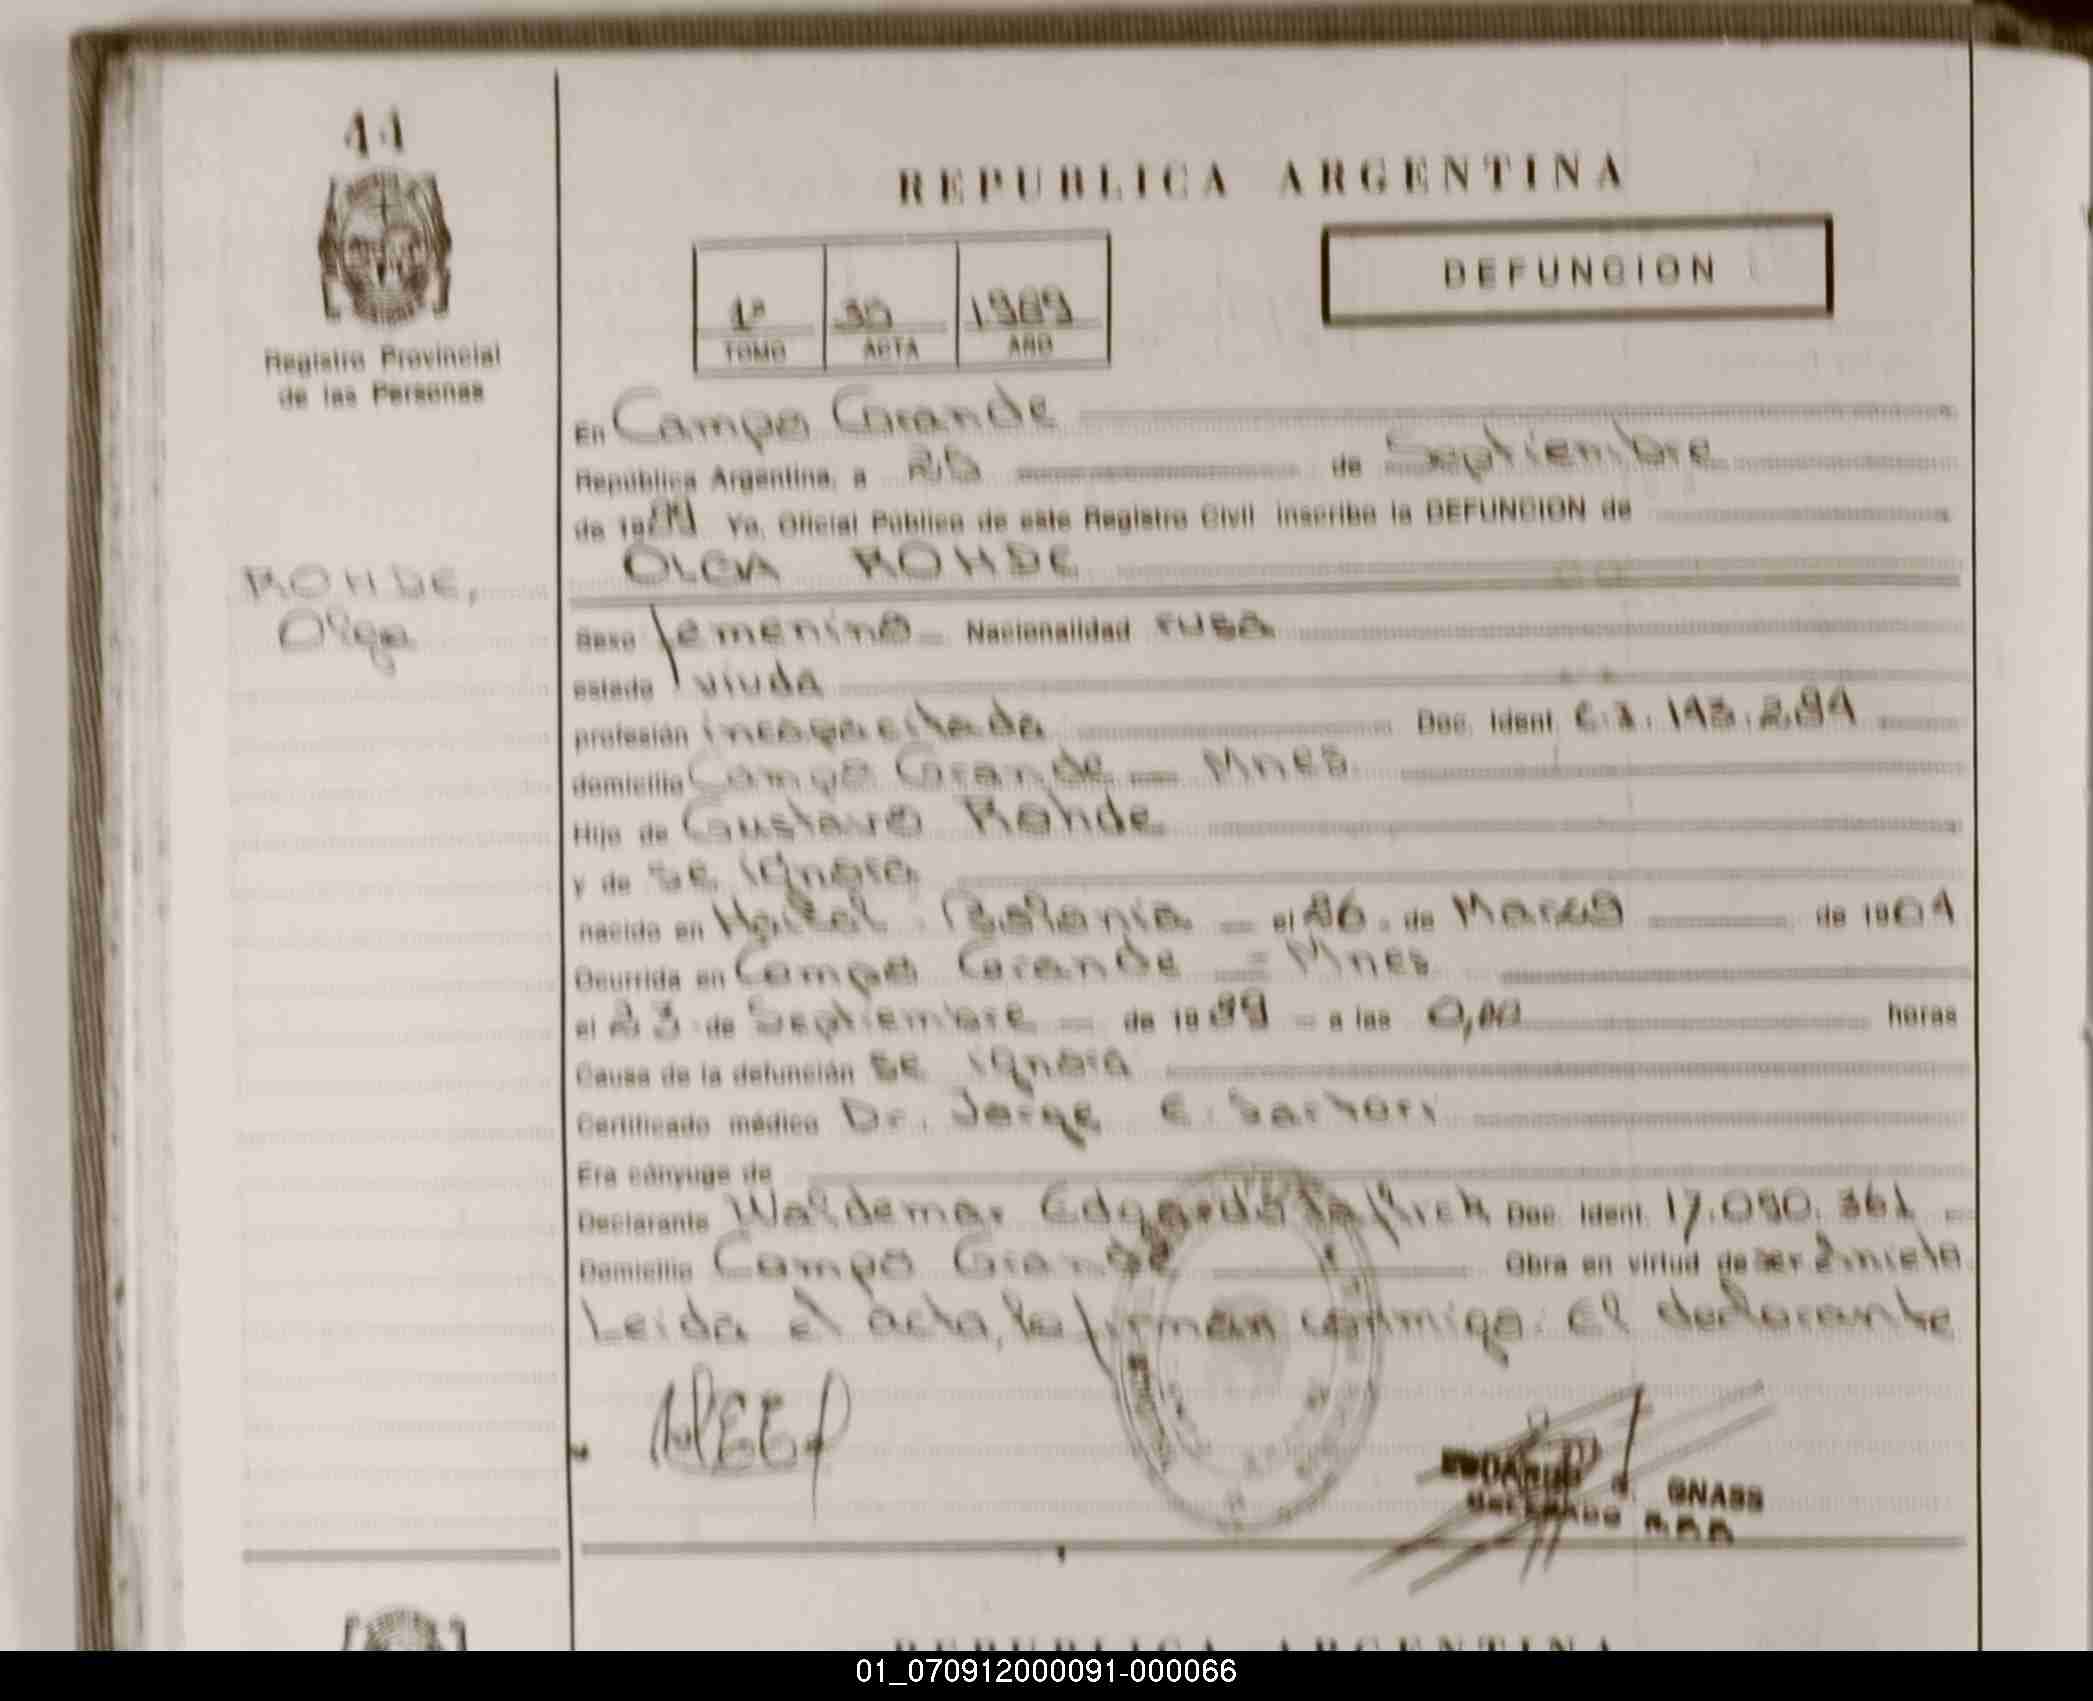 11
Registro Provincial
de las Personas
REPUBLICA ARGENTINA
DEFUNCION
1º 30 1989
TOMO ACTA AÑO
En Campo Grande
República Argentina, a 25 de Septiembre
de 1989 Yo, Oficial Público de este Registro Civil inscribo la DEFUNCION de
OLGA ROHDE
ROHDE,
Olga
Sexo femenino Nacionalidad rusa
estado viuda
profesión incapacitada Doc. Ident. C.I. 143.294
domicilio Campo Grande - Mnes.
Hijo de Gustavo Rohde
y de se ignora
nacido en Polonia el 26 de Marzo de 1904
Ocurrida en Campo Grande = Mnes
el 23 de Septiembre de 1989 a las 0,00 horas
Causa de la defunción se ignora
Certificado médico Dr. Jorge E. Sartori
Era cónyuge de
Declarante Waldemar Edgardo Doc. Ident. 17.090.361
Domicilio Campo Grande Obra en virtud de ser
Leida el acta, la firman conmigo: El declarante
EDUARDO GNASS
DELEGADO R.P.P.
REPUBLICA ARGENTINA
01_070912000091-000066